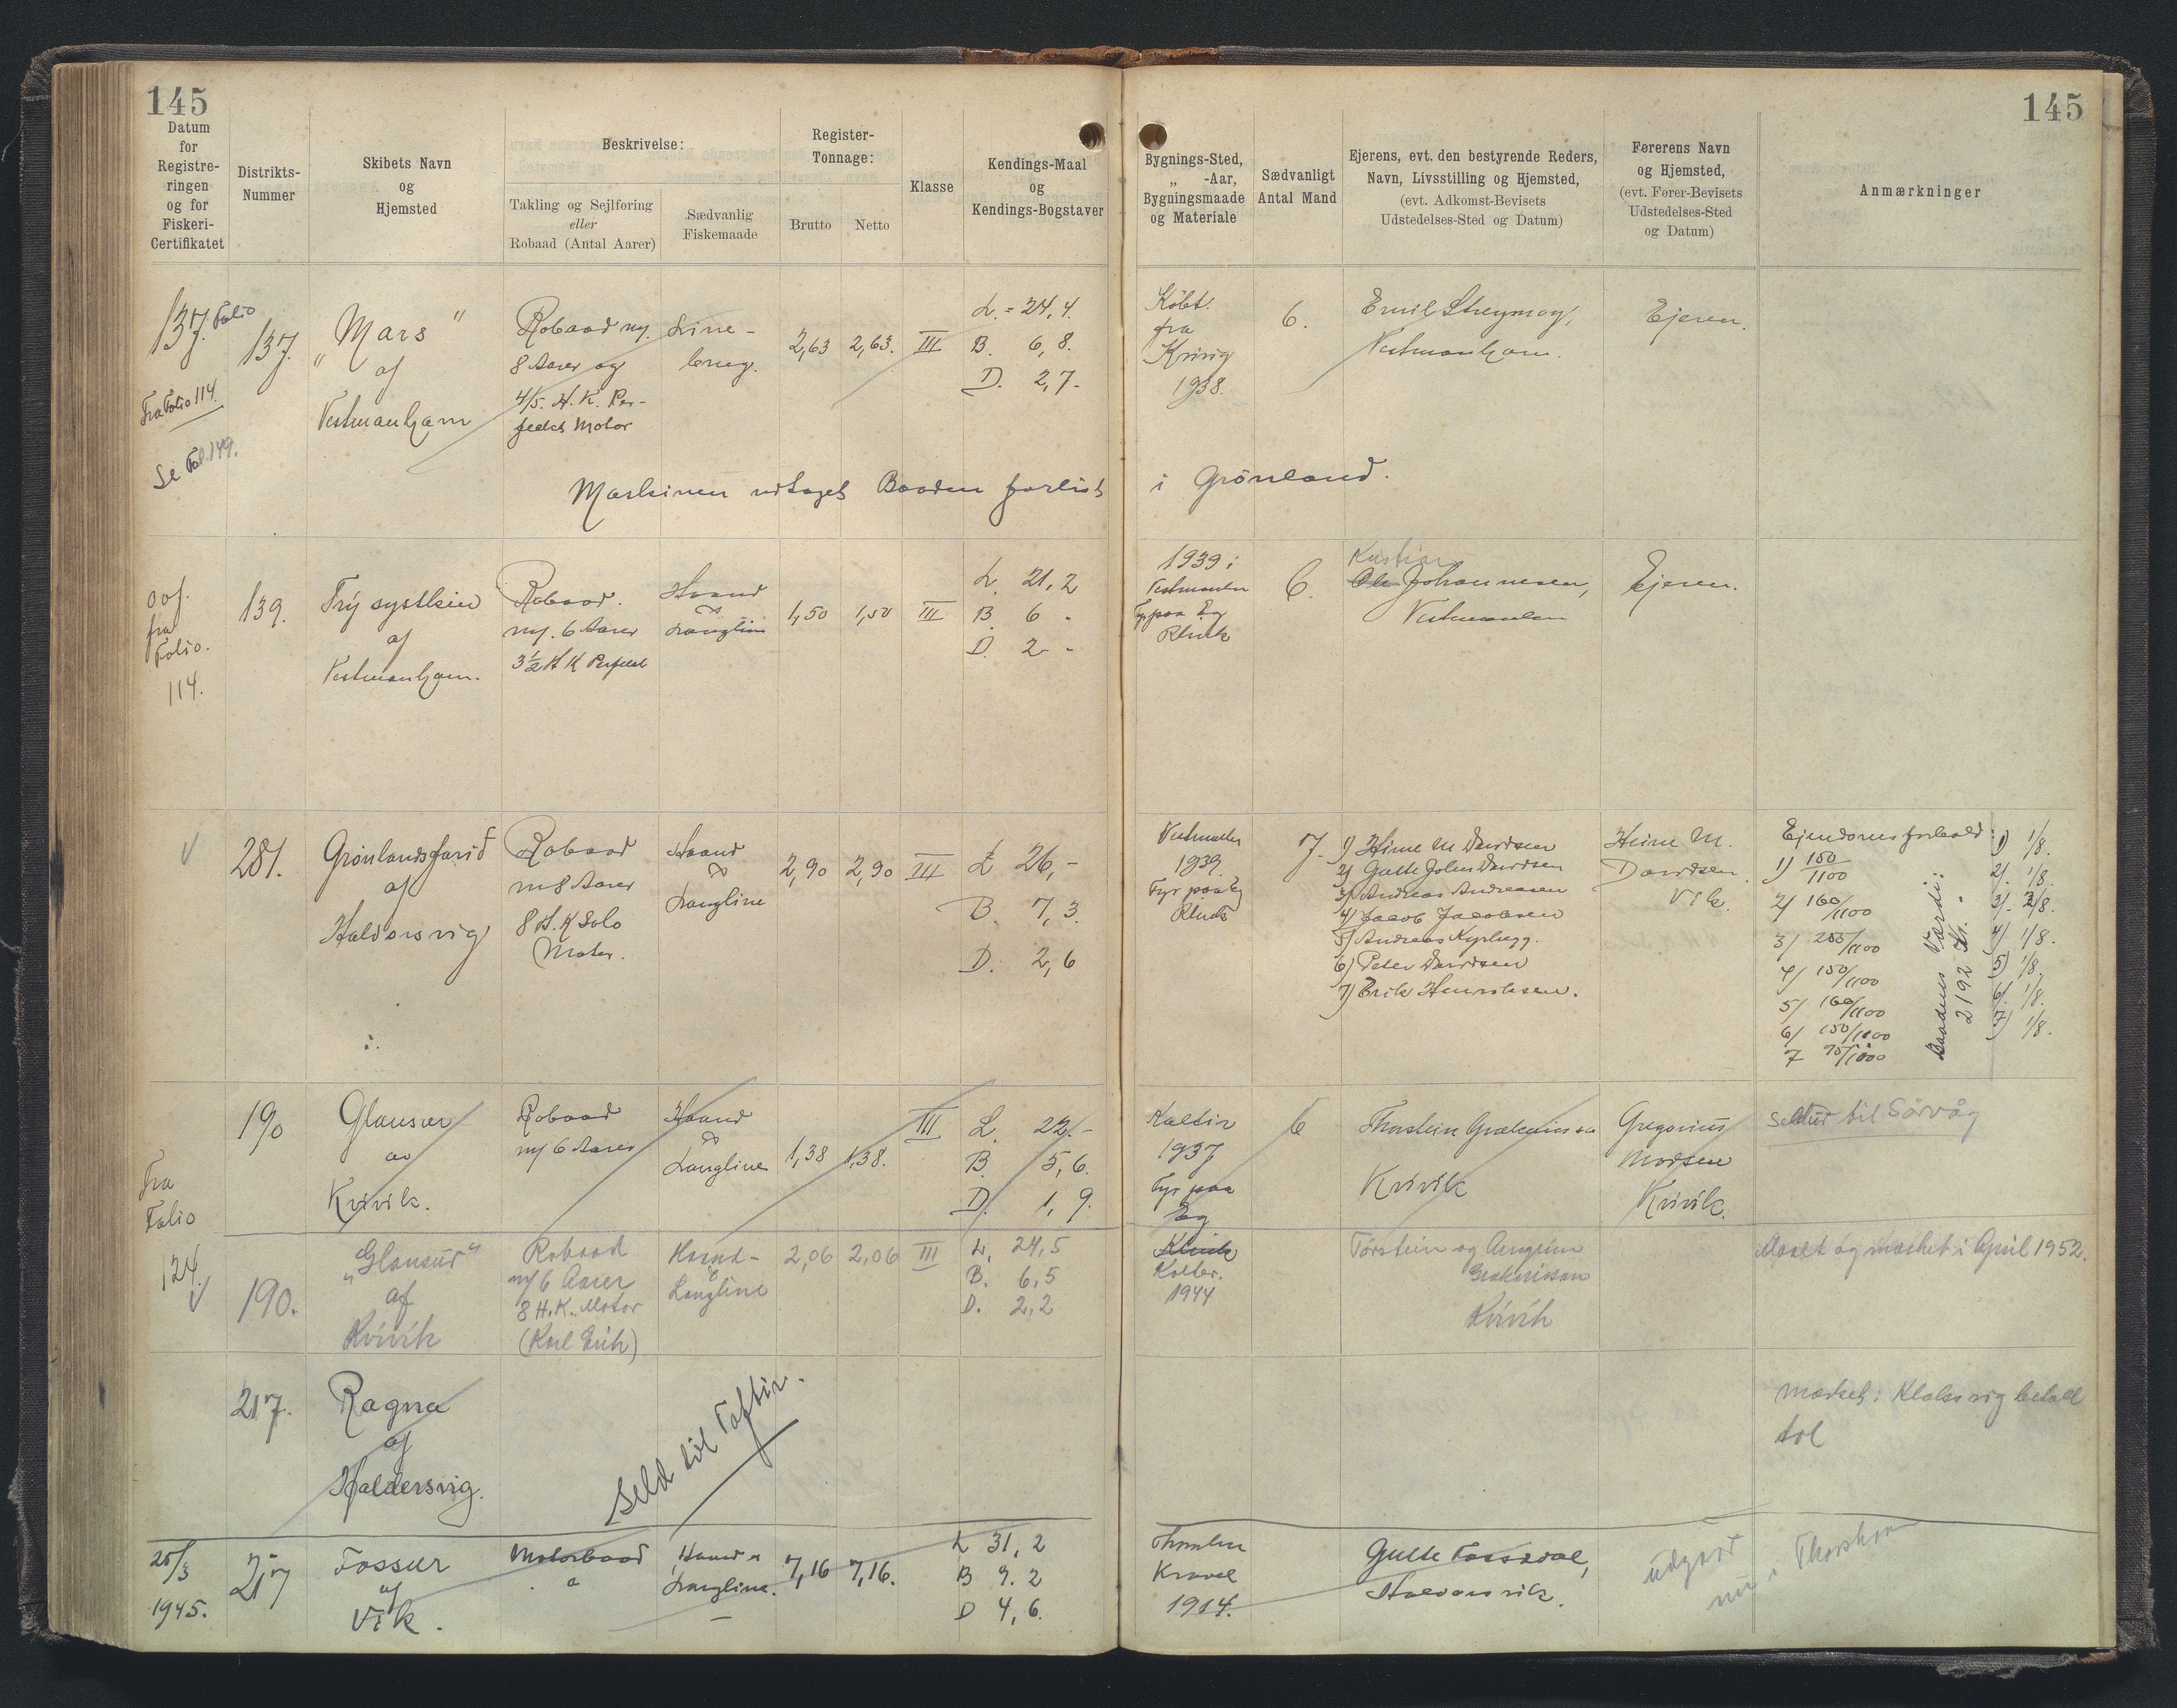 145
Datum
for
Registre-
ringen
og for
Fiskeri-
Certifikatet
Distrikts-
Nummer
Skibets Navn
og
Hjemsted
Beskrivelse:
Takling og Sejlføring
eller
Robaad (Antal Aarer)
Sædvanlig
Fiskemaade
Register-
Tonnage:
Brutto
Netto
Klasse
Kendings-Maal
og
Kendings-Bogstaver
Bygnings-Sted,
„ -Aar,
Bygningsmaade
og Materiale
Sædvanligt
Antal Mand
Ejerens, evt. den bestyrende Reders,
Navn, Livsstilling og Hjemsted,
(evt. Adkomst-Bevisets
Udstedelses-Sted og Datum)
Førerens Navn
og Hjemsted,
(evt. Fører-Bevisets
Udstedelses-Sted
og Datum)
Anmærkninger
145
137. Folio
Fra Folio 114.
Se Fol. 149.
137.
"Mars"
af
Vestmanhavn
Robaad m/.
8 Aarer og
4/5. H. K. Per-
fekt Motor
Line-
brug.
2,63
2,63.
III
L. = 24, 4.
B. 6, 8.
D. 2, 7.
Købt
fra
Kvivig
1938.
6.
Emil Streymoy,
Vestmanhavn.
Ejeren.
Maskinen udtaget Baaden forlist i Grönland.
fra
Folio.
114.
139.
Trý systkin
af
Vestmanhavn.
Robaad.
m/. 6 Aarer
3½ H K Perfekt
Haand
&
Langline
1,50
1,50
III
L. 21, 2
B. 6 "
D. 2 "
1939 i
Fyr paa Eg
Klink
6.
Johannesen,
Ejeren.
281.
Grönlandsfarið
af
Haldorsvig
Robaad
m 8 Aarer
8 H. K Solo
Motor.
Haand
&
Langline
2,90
2,90
III
L 26, -
B. 7, 3.
D. 2, 6
1939.
Fyr paa Eg
Klink
7.
1) Heine M Davidsen
2) Gutte John Davidsen
3) Andreas Andreasen
4) Jacob Jacobsen
5) Andreas Kyrhegg.
6) Peter Davidsen
7) Erik Henriksen.
Heine M.
Davidsen
Vik.
Ejendomsforhold:
1) 150/1100
2/ 160/1100
3/ 255/1100
4/ 150/1100
5/ 160/1100
6/ 150/1100
7 75/1100
Baadens Værdi:
2192 Kr.
1) 1/8.
2/. 1/8.
3/- 2/8.
4) 1/8.
5) 1/8,
6/. 1/8.
7) 1/8.
Fra
Folio
124.
190
Glansur
av
Kvivik.
Robaad
m/ 6 Aarer
Haand
&
Langline
1,38
1,38.
III
L. 22. -
B. 5, 6.
D. 1, 9.
Kaltir
1937
Fyr paa
Eg
Klink
6
Kvivik
Gregorius
Modsen
Kvivik.
Seldur til Sörvåg
190.
"Glansur"
af
Kvivik
Robaad
m/ 6 Aarer
8 H.K. Motor
(Karl Erik)
Haand-
&
Langline
2,06
2,06
III
L. 24,5
B. 6,5
D. 2,2
Kolter.
1944
Tórstein og
Kvivik
Maalt og mærket i April 1952.
217.
Ragna
af
Haldersvig.
Seld til Toftir.
mærket i Klaksvig betalt
tol
25/3
1945.
217
Fossur
af
Vik.
Motorbaad
Haand &
Langline.
7,16
7,16.
L 31, 2
B 9. 2
D 4, 6.
Kravel
1914.
Gutte Fossdal,
Haldorsvik.
udgaad
nu i Thorshavn